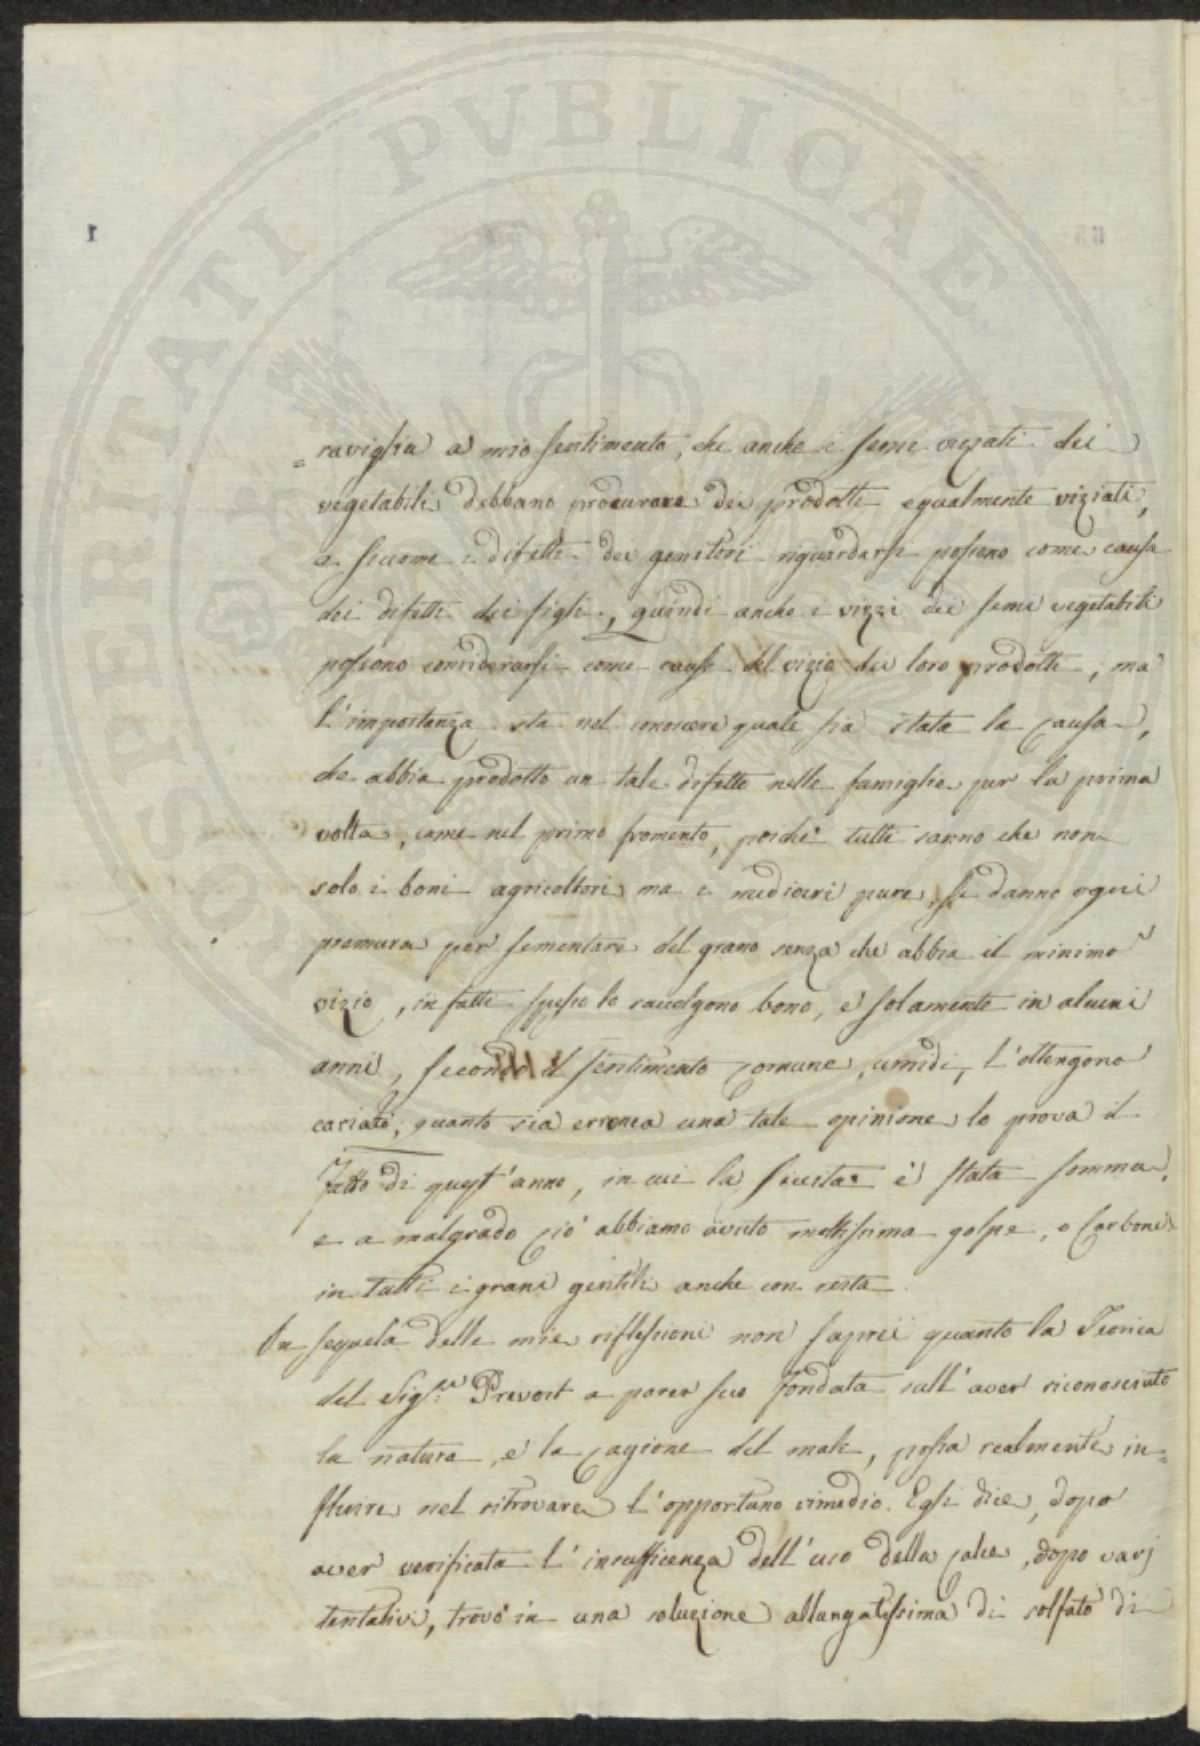 PROSPERITATI PVBLICAE
1
65
= raviglia a mio sentimento, che anche i semi viziati dei
vegetabili debbano procurare dei prodotti egualmente viziati,
e siccome i difetti dei genitori riguardarsi possono come causa
dei difetti dei figli, quindi anche i vizzi dei semi vegetabili
possono considerarsi come cause del vizio dei loro prodotti, ma
l'importanza sta nel conoscere quale sia stata la causa,
che abbia prodotto un tale difetto nelle famiglie per la prima
volta, come nel primo fromento, poiche tutti sanno che non
solo i boni agricoltori ma i mediocri pure, si danno ogni
premura per sementare del grano senza che abbia il minimo
vizio, in fatti spesso lo raccolgono bono, e solamente in alcuni
anni, secondo il sentimento comune, umidi, l'ottengono
cariato; quanto sia erronea una tale opinione lo prova il
fatto di quest'anno, in cui la siccità è stata somma,
e a malgrado ciò abbiamo avuto moltissima golpe, o Carbone
in tutti i grani gentili anche con resta.
In sequela delle mie riflessioni non saprei quanto la Teorica
del Sig.re Prevost a parer suo fondata sull'aver riconosciuto
la natura, e la cagione del male, possa realmente in=
fluire nel ritrovare l'opportuno rimedio. Egli dice, dopo
aver verificata l'insufficenza dell'uso della calce, dopo varj
tentativi, trovò in una soluzione allungatissima di solfato di